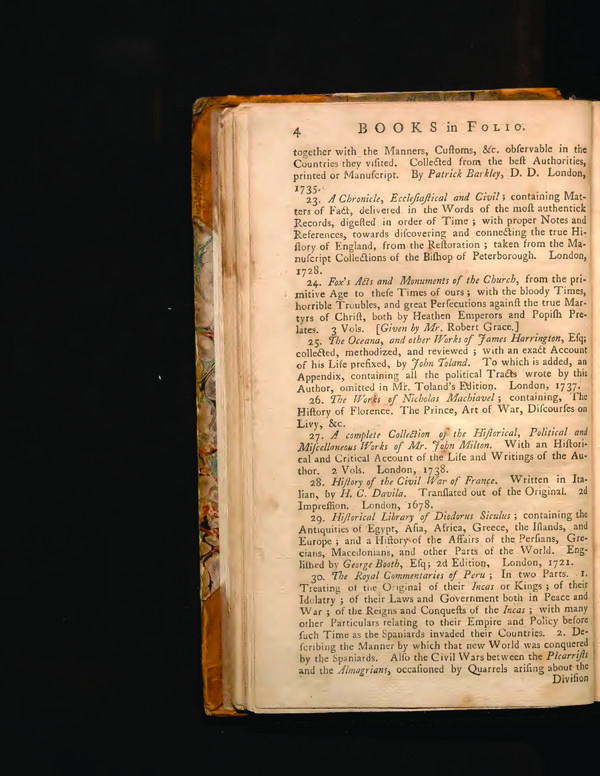 4 BOOKS in FOLIO.
together with the Manners, Cuſtoms, &c. obſervable in the
Countries they viſited. Collected from the beſt Authorities,
printed or Manuſcript. By Patrick Barkley, D. D. London,
1735.
23. A Chronicle, Eccleſiaſtical and Civil; containing Mat-
ters of Fact, delivered in the Words of the moſt authentick
Records, digeſted in order of Time; with proper Notes and
References, towards diſcovering and connecting the true Hi-
ſtory of England, from the Reſtoration; taken from the Ma-
nuſcript Collections of the Biſhop of Peterborough. London,
1728.
24. Fox's Acts and Monuments of the Church, from the pri-
mitive Age to theſe Times of ours; with the bloody Times,
horrible Troubles, and great Perſecutions againſt the true Mar-
tyrs of Chriſt, both by Heathen Emperors and Popiſh Pre-
lates. 3 Vols. [Given by Mr. Robert Grace.]
25. The Oceana, and other Works of James Harrington, Eſq;
collected, methodized, and reviewed; with an exact Account
of his Life prefixed, by John Toland. To which is added, an
Appendix, containing all the political Tracts wrote by this
Author, omitted in Mr. Toland's Edition. London, 1737.
26. The Works of Nicholas Machiavel; containing, The
Hiſtory of Florence. The Prince, Art of War, Diſcourſes on
Livy, &c.
27. A complete Collection of the Hiſtorical, Political and
Miſcellaneous Works of Mr. John Milton. With an Hiſtori-
cal and Critical Account of the Life and Writings of the Au-
thor. 2 Vols. London, 1738.
28. Hiſtory of the Civil War of France. Written in Ita-
lian, by H. C. Davila. Tranſlated out of the Original. 2d
Impreſſion. London, 1678.
29. Hiſtorical Library of Diodorus Siculus; containing the
Antiquities of Egypt, Aſia, Africa, Greece, the Iſlands, and
Europe; and a Hiſtory of the Affairs of the Perſians, Gre-
cians, Macedonians, and other Parts of the World. Eng-
liſhed by George Booth, Eſq; 2d Edition, London, 1721.
30. The Royal Commentaries of Peru; In two Parts. 1.
Treating of the Original of their Incas or Kings; of their
Idolatry; of their Laws and Government both in Peace and
War; of the Reigns and Conqueſts of the Incas; with many
other Particulars relating to their Empire and Policy before
ſuch Time as the Spaniards invaded their Countries. 2. De-
ſcribing the Manner by which that new World was conquered
by the Spaniards. Alſo the Civil Wars between the Picarriſts
and the Almagrians, occaſioned by Quarrels ariſing about the
Diviſion